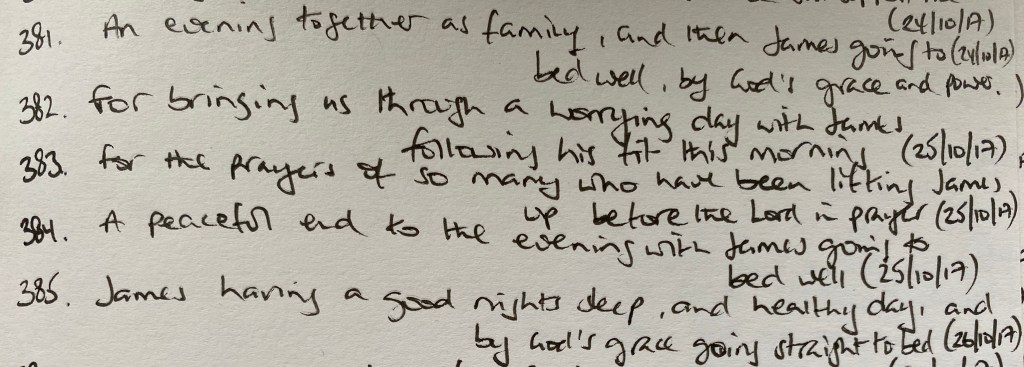 (24/10/17)
381. An evening together as family, and then James going to (24/10/17)
bed well, by God's grace and power.
382. For bringing us through a worrying day with James
following his fit this morning (25/10/17)
383. For the prayers of so many who have been lifting James
up before the Lord in prayer (25/10/17)
384. A peaceful end to the evening with James going to
bed well (25/10/17)
385. James having a good nights sleep, and healthy day, and
by God's grace going straight to bed (26/10/17)